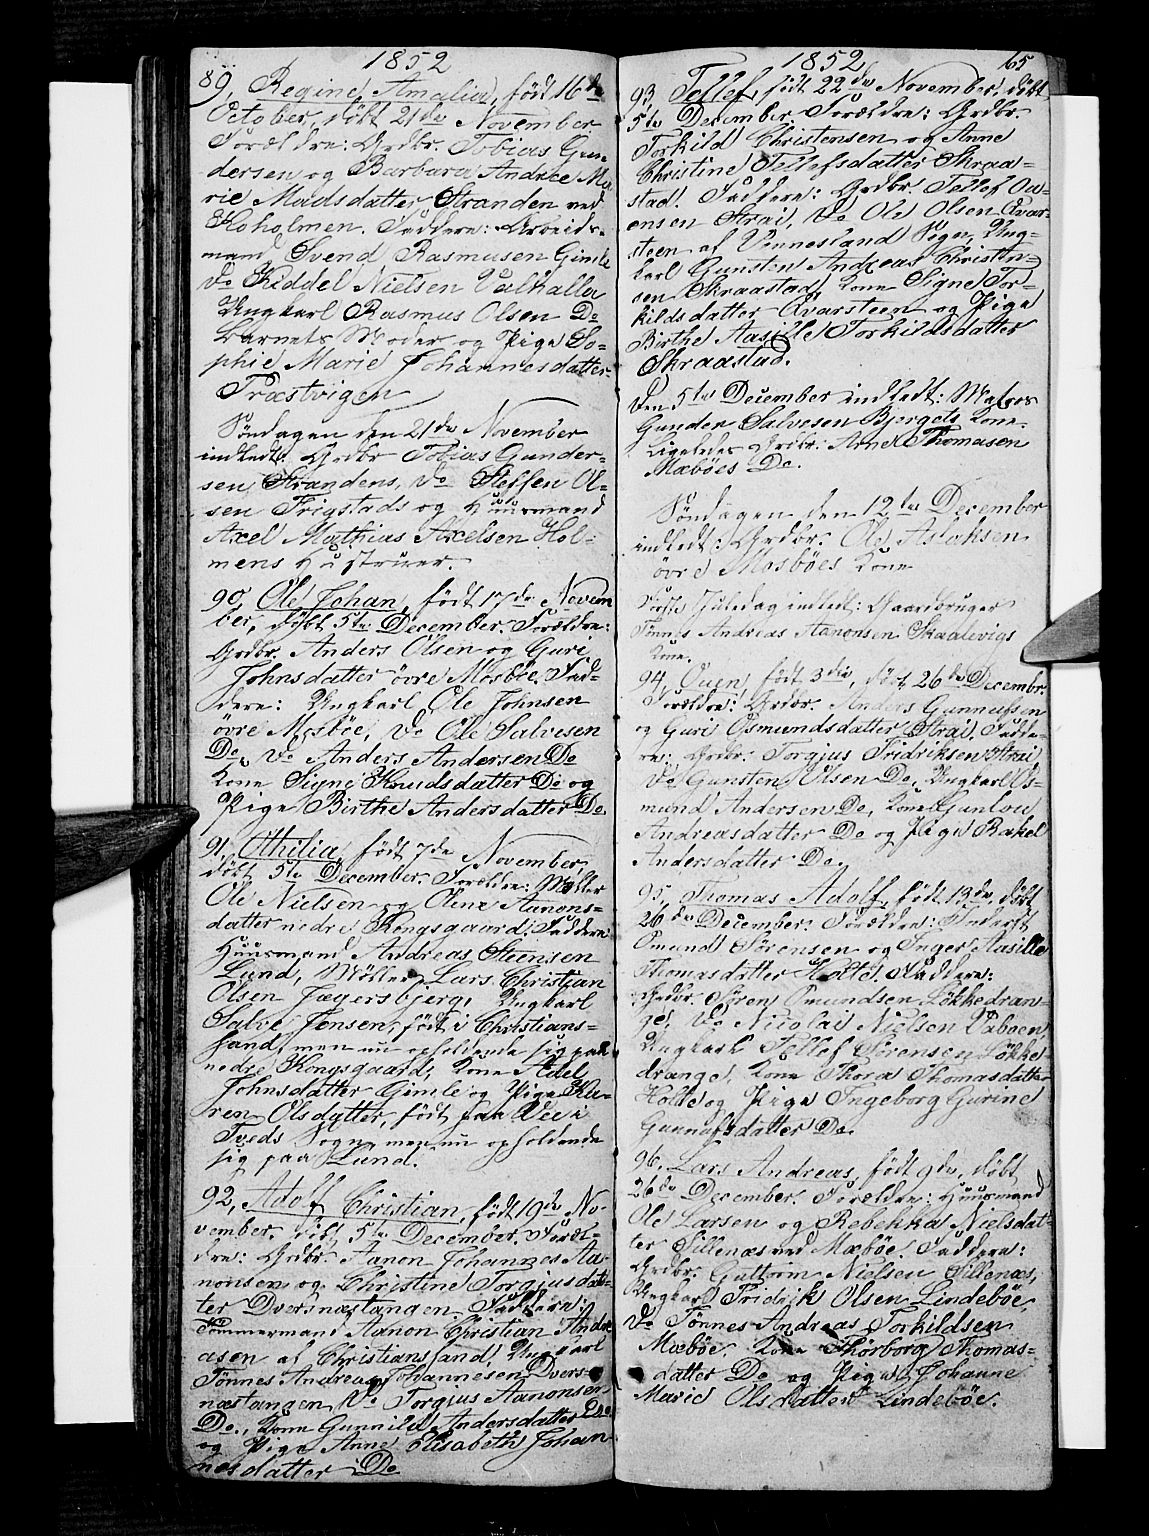 1852
89, Regine Amalia, født 16de
October, døbt 21de November
Forældre: Grdbr. Tobias Gun
dersen og Barbara Andrea Ma
rie Madsdatter Stranden ved
Hoholmen. Faddere: Arbeids-
mand Svend Rasmusen Gimle
Do Kiddel Nielsen Valhalla
Ungkarl Rasmus Olsen Do
Barnets Moder og Pige So-
phie Marie Johannesdatter
Træstvigen
Søndagen den 21de November
indledt: Grdbr Tobias Gunder-
sen Strandens, Do Steffen Ol-
sen Frigstads og Huusmand
Axel Mathias Axelsen Hol-
mens Hustruer.
90, Ole Johan, født 17de Novem
ber, døbt 5te December. Forældre:
Grdbr. Anders Olsen og Guri
Johnsdatter övre Mosböe. Fad-
dere: Ungkarl Ole Johnsen
övre Mosböe, Do Ole Salvesen
Do, Do Anders Andersen Do
Kone Signe Knudsdatter Do og
Pige Birthe Andersdatter Do
91, Othilia, født 7de November,
døbt 5te December. Forældre: Møller
Ole Nielsen og Olene Aanons-
datter nedre Kongsgaard. Faddere:
Huusmand Andreas Steensen
Lund, Møller Lars Christian
Olsen Jægersbjerg, Ungkarl
Salve Jensen, født i Christians-
sand, men nu opholdende sig paa
nedre Kongsgaard, Kone Adel
Johnsdatter Gimle og Pige Ka-
ren Olsdatter, født paa Vee i
Tveds Sogn, men nu opholdende
sig paa Lund.
92, Adolf Christian, født 19de No-
vember, døbt 5te December. Foræl-
dre: Grdbr. Aanon Johannes Aa-
nonsen og Christine Torgjusdat-
ter Dversnæstangen. Faddere:
Tømmermand Aanon Christian Andre
asen af Christianssand, Ungkarl
Tønnes Andreas Johannesen Dvers-
næstangen, Do Torgjus Aanonsen
Do., Kone Gunnild Andersdatter Do
og Pige Anne Elisabeth Johan-
nesdatter Do
1852 65
93, Tellef, født 22de November, døbt
5te December. Forældre: Grdbr.
Torkild Christensen og Anne
Christine Tellefsdatter Skraa-
stad. Faddere: Grdbr Tellef Aa-
ensen Strai, Do Ole Olsen Qvar-
steen af Vennesland Sogn, Ung-
karl Gunsten Andreas Christen-
sen Skraastad, Kone Signe Tor-
kildsdatter Qvarsteen og Pige
Birthe Aasille Torkildsdatter
Skraastad.
Den 5te December indledt: Matros
Gunder Salvesen Bjergets Kone.
Ligeledes Grdbr. Arne Thomasen
Mæbøes Do.
Søndagen den 12te December
indledt: Grdbr. Ole Aslaksen
övre Mosböes Kone
Første Juledag indledt: Gaardbruger
Tønnes Andreas Aanonsen Skaalevigs
Kone.
94, Ouen, født 3die, døbt 26de Decembr.
Forældre: Grdbr. Anders Gunnufsen
og Guri Osmundsdatter Strai. Fadde-
re: Grdbr. Torgjus Fridriksen Strai,
Do Gunsten Olsen Do, Ungkarl Os-
mund Andersen Do, Kone Gunlou
Andreasdatter Do og Pige Rakel
Andersdatter Do.
95, Thomas Adolf, født 13de, døbt
26de December. Forældre: Inderst
Omund Sørensen og Inger Aasille
Thomasdatter Holte. Faddere:
Grdbr. Søren Omundsen Løkkedran-
ge, Do Nicolai Nielsen Vaboen,
Ungkarl Tellef Sørensen Løkke-
drange, Kone Thora Thomasdatter
Holte og Pige Ingeborg Gurine
Gunnufsdatter Do.
96, Lars Andreas, født 9de, døbt
26de December. Forældre: Huusmand
Ole Larsen og Rebekka Nielsdat-
ter Sillenæs ved Mæbøe. Faddere:
Grdbr. Guttorm Nielsen Sillenæs,
Ungkarl Fridrik Olsen Lindebøe,
Do Tønnes Andreas Torkildsen
Mæbøe, Kone Thorborg Thomas-
datter Do og Pige Johanne
Marie Olsdatter Lindebøe.